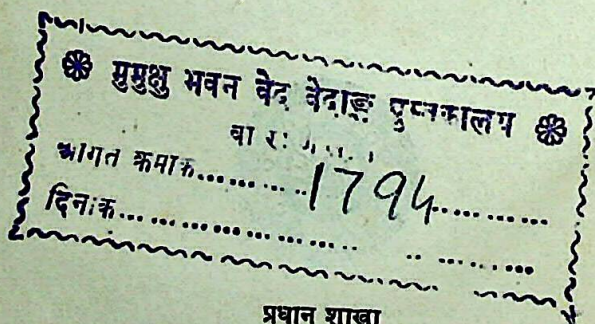 ❁ मुमुक्षु भवन वेद वेदाङ्ग पुस्तकालय ❁
आगत क्रमांक..........1794..........
दिनांक........................
प्रधान शाखा